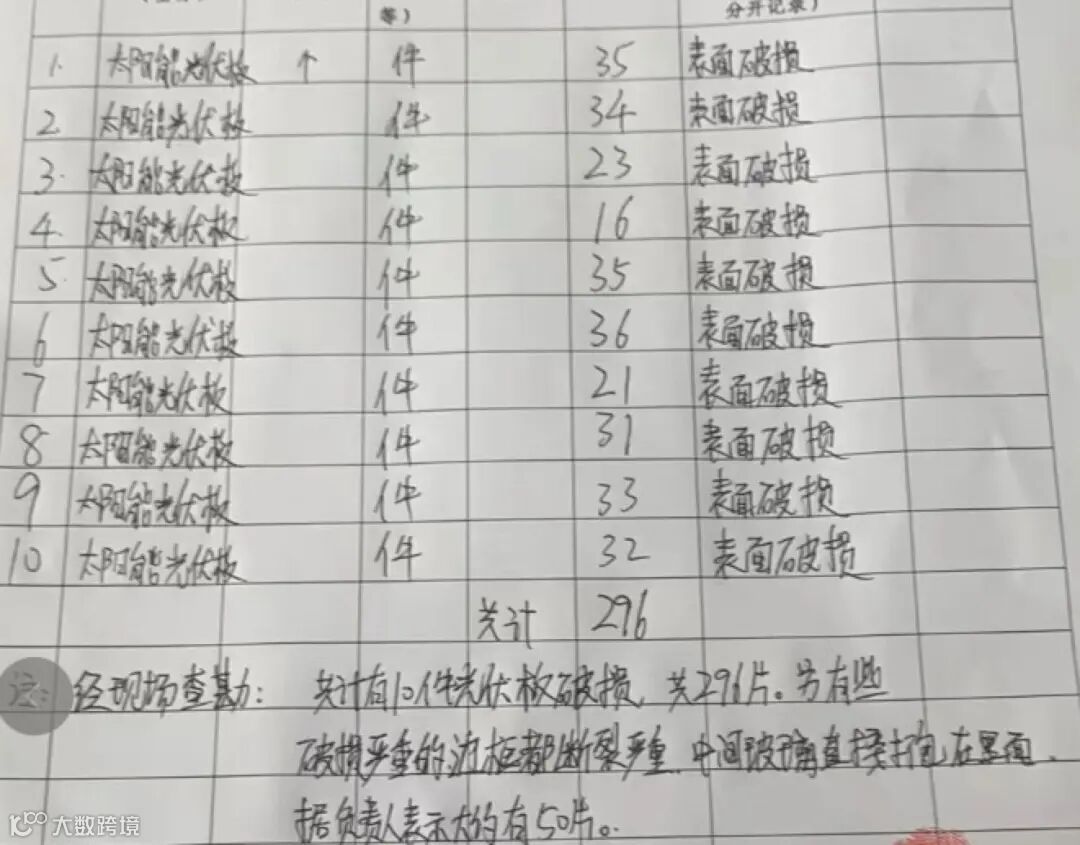 等) 分开记录)
1. 太阳能光伏板 ↑ 件 35 表面破损
2. 太阳能光伏板 件 34 表面破损
3. 太阳能光伏板 件 23 表面破损
4. 太阳能光伏板 件 16 表面破损
5. 太阳能光伏板 件 35 表面破损
6 太阳能光伏板 件 36 表面破损
7 太阳能光伏板 件 21 表面破损
8 太阳能光伏板 件 31 表面破损
9 太阳能光伏板 件 33 表面破损
10 太阳能光伏板 件 32 表面破损
共计 296
注: 经现场查勘: 共计有10件光伏板破损, 共296片。另有些
破损严重的边框都断裂严重, 中间玻璃直接打包在里面,
据负责人表示大约有50片。
大数跨境